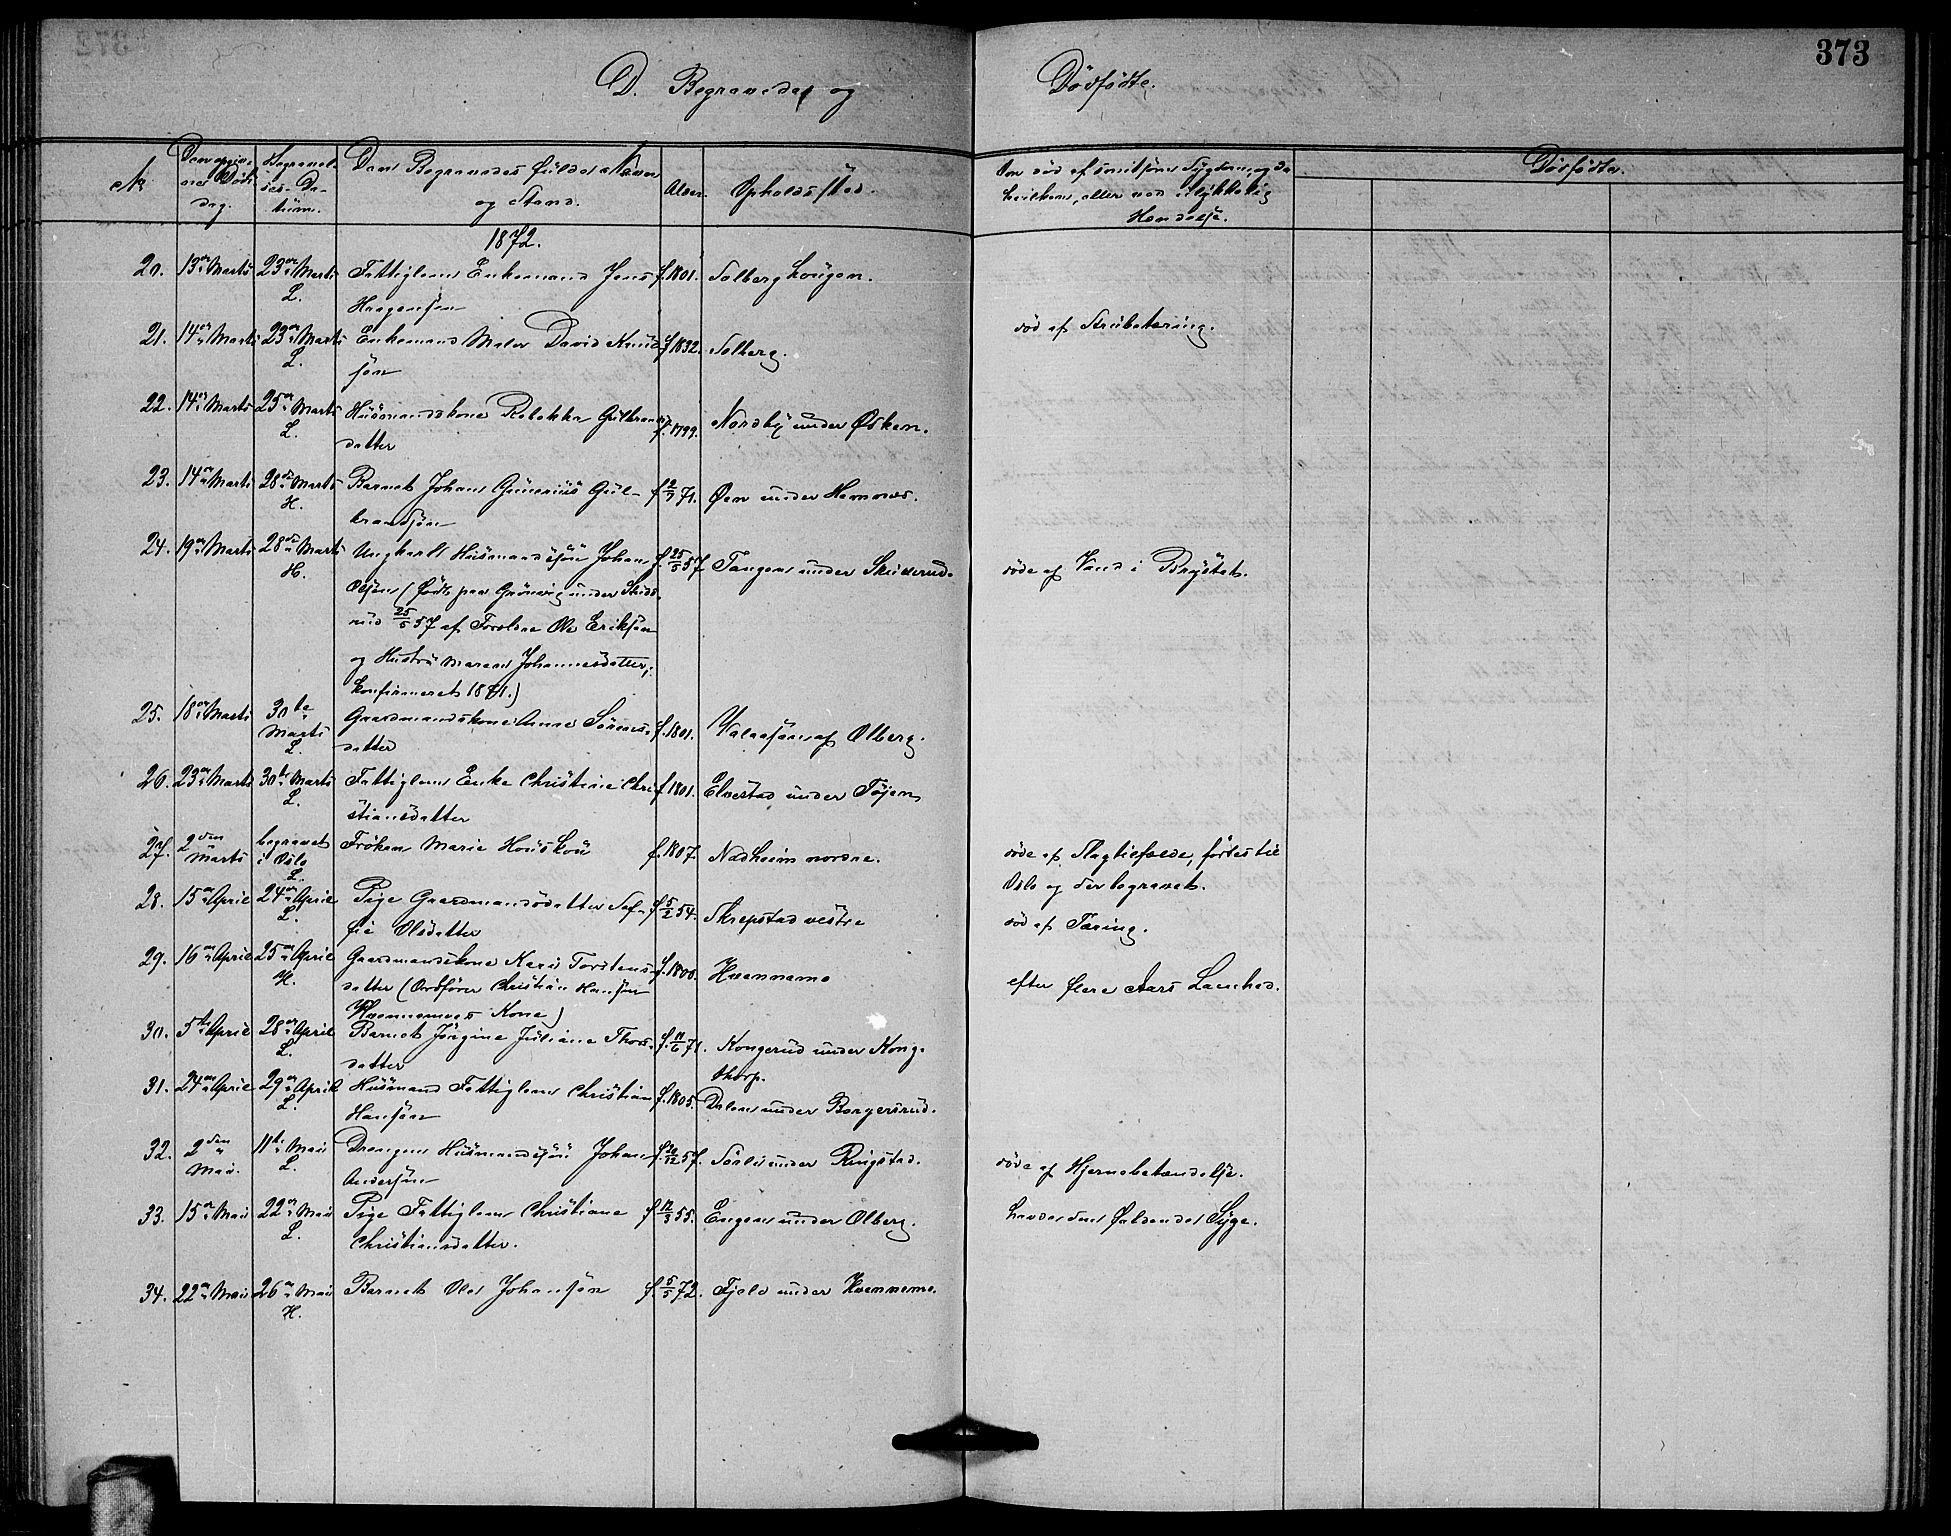 373
D. Begravede og Dødfødte.
No
Den opgivne Døds-dag.
Begravel-ses-Da-tum.
Den Begravedes fulde Navn og Stand.
Alder.
Opholdssted.
Dødfødte.
1872.
20. 13de Marts 23de Marts L. Fattiglem Enkemand Jens Haagensen f. 1801. Solberg
21. 14de Marts 23de Marts L. Enkemand Maler David Knud-sen f. 1832. Solberg. død af Strubetæring.
22. 14de Marts 25de Marts L. Husmandskone Rebekka Gulbrands-datter f. 1799. Nordby under
23. 14de Marts 28de Marts H. Barnet Johan Gunerius Gul-brandsen f. 71. Øen under Hemnæs.
24. 19de Marts 28de Marts H. Ungkarl Husmandssøn Johan f. 25/5 57 Tangen under døde af Vand i Brystet.
Olsen (Født paa under
25/5 57 af Forældre Ole Eriksen
og Hustru Maren Johannesdatter,
konfirmeret 1871.)
25. 18de Marts 30te Marts L. Gaardmandskone Anne Sørens-datter f. 1801. af Olberg.
26. 23de Marts 30te Marts L. Fattiglem Enke Christine Chri-stiansdatter f. 1801. Elvestad under Tøien
27. 2den Marts begravet i Oslo L. Frøken Marie f. 1807. nordre. døde af Slagtilfælde, førtes til
Oslo og der begravet.
28. 15de April 24de April L. Pige Gaardmandsdatter Sof-fie Olsdatter f. 5/2 54. Skrepstad vestre død af Tæring.
29. 16de April 25de April H. Gaardmandskone Kari Torstens-datter (Ordfører Christian Hansen Kone) f. 1800. efter flere Aars
30. 5te April 28de April L. Barnet Jørgine Juliane Thors-datter f. 71. Kongerud under Kong-thorp.
31. 24de April 29de April L. Husmand Fattiglem Christian Hansen f. 1805. Dalen under Borgersrud.
32. 2den Mai. 11te Mai L. Drengen Husmandssøn Johan Andersen f. 57. Sørli under Ringstad. døde af Hjernebetændelse.
33. 15de Mai 22de Mai L. Pige Fattiglem Christiane Christiansdatter. f. 12/3 55. Engen under Olberg. havde den faldende Syge.
34. 22de Mai 26de Mai H. Barnet Ole Johansen f. 5/5 72. Fjeld under